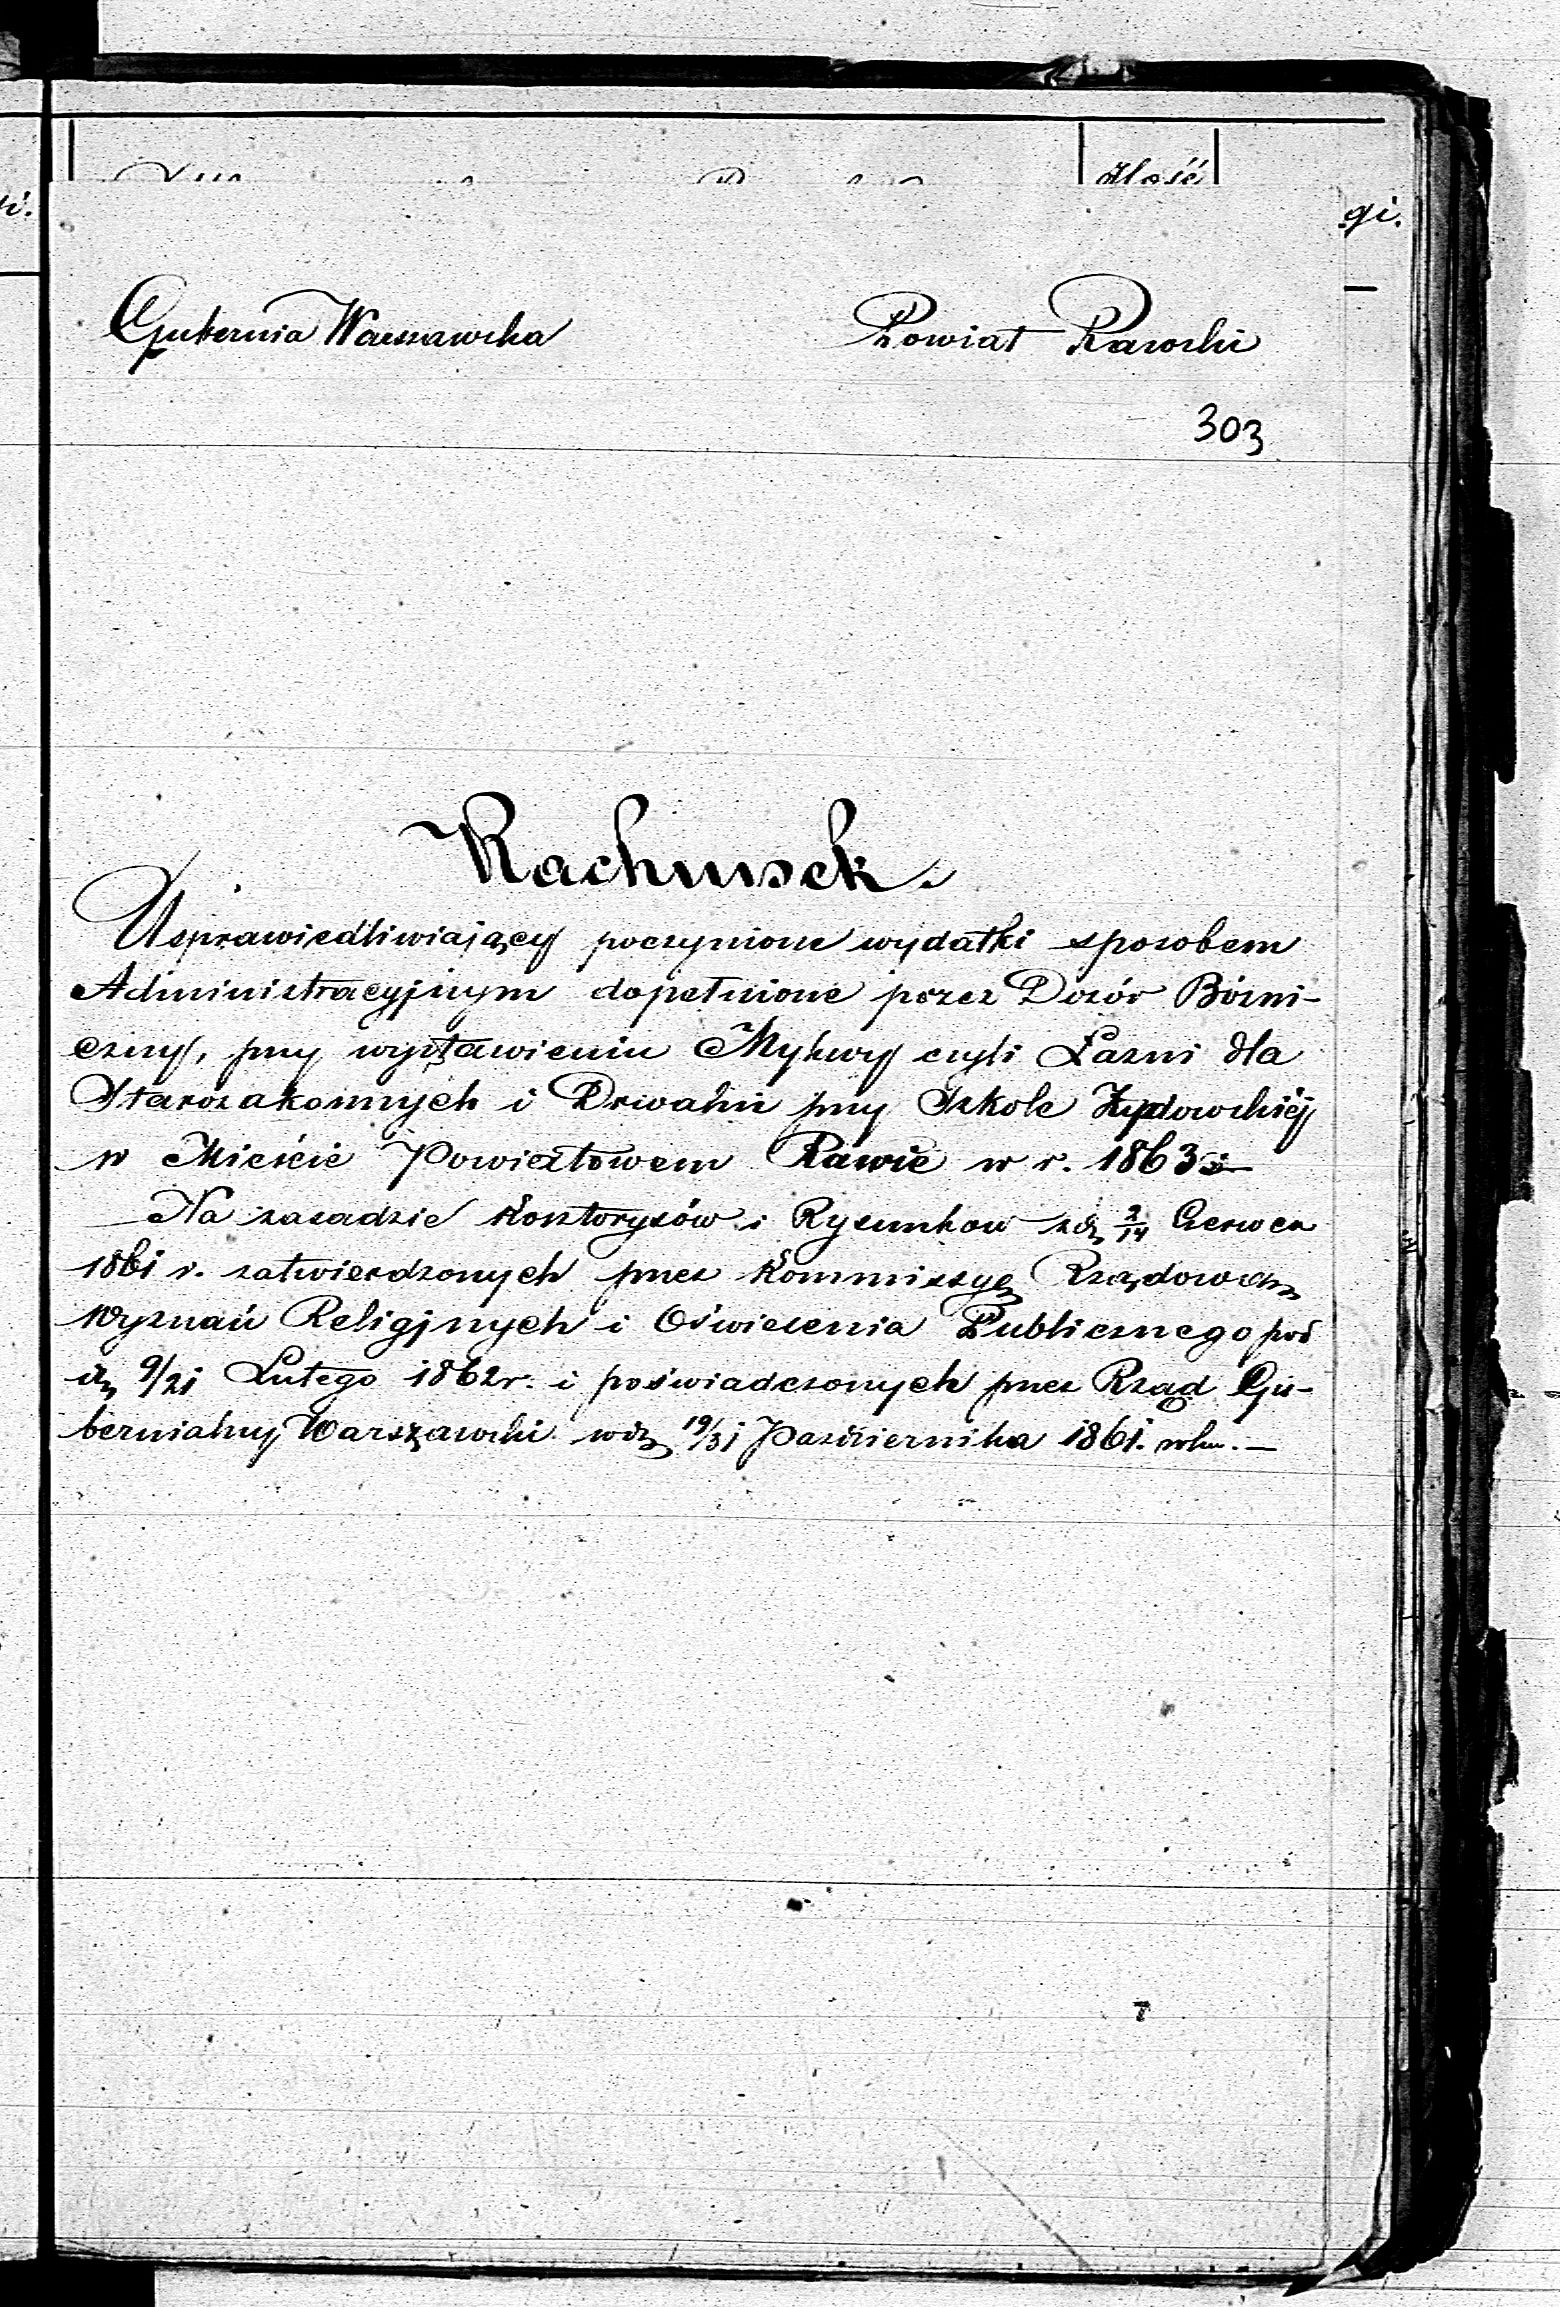 Ilość
gi.
Gubernia Warszawska Powiat Rawski
303
Rachunek.
Usprawiedliwiający poczynione wydatki sposobem
Administracyjnym dopełnione przez Dozór Bóżni-
czny, przy wystawieniu Mykwy czyli Łazni dla
Starozakonnych i Drwalni przy Szkole Żydowskiéj
w Mieście Powiatowem Rawie w r. 1863
Na zasadzie Kosztorysów i Rysunkow z d. 2/14 Czerwca
1861 r. zatwierdzonych przez Kommissyę Rządową
Wyznań Religijnych i Oświecenia Publicznego pod
d. 9/21 Lutego 1862 r. i poświadczonych przez Rząd Gu-
bernialny Warszawski w d. 19/31 Października 1861. roku. —